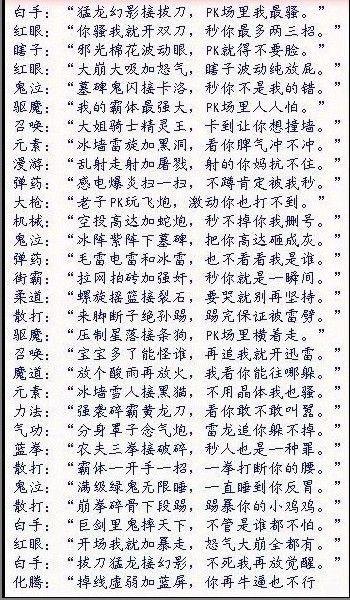 白手：“猛龙幻影接拔刀，PK场里我最骚。”
红眼：“你骚我就开双刀，秒你最多两三招。”
瞎子：“邪光棉花波动眼，PK就得不要脸。”
红眼：“大崩大吸加怒气，瞎子波动纯放屁。”
鬼泣：“墓碑鬼闪接卡洛，秒你不是我的错。”
驱魔：“我的霸体最强大，PK场里人人怕。”
召唤：“大姐骑士精灵王，卡到让你想撞墙。”
元素：“冰墙雷旋加黑洞，看你脾气冲不冲。”
漫游：“乱射走射加屠戮，射的你妈抗不住。”
弹药：“感电爆炎扫一扫，不蹲肯定被我秒。”
大枪：“老子PK玩飞炮，激动你也打不到。”
机械：“空投高达加蛇炮，秒不掉你我删号。”
鬼泣：“冰阵紫阵下墓碑，把你高达砸成灰。”
弹药：“毛雷电雷和冰雷，也不看看我是谁。”
街霸：“拉网拍砖加强奸，秒你就是一瞬间。”
柔道：“螺旋摇篮接裂石，要哭就别再坚持。”
散打：“来脚断子绝孙踢，踢完保证被雷劈。”
驱魔：“压制星落接条狗，PK场里横着走。”
召唤：“宝宝多了能怪谁，再追我就开迅雷。”
魔道：“放个酸雨再放火，我看你能往哪躲。”
元素：“冰墙雪人接黑猫，不用晶体我也骚。”
力法：“强袭碎霸黄龙刀，看你敢不敢叫嚣。”
气功：“分身罩子念气炮，雷龙追你躲不掉。”
蓝拳：“农夫三拳接破碎，秒人也是一种罪。”
散打：“霸体一开手一招，一拳打断你的腰。”
鬼泣：“满级绿鬼无限睡，一直睡到你反冒。”
散打：“崩拳碎骨下段踢，踢暴你的小鸡鸡。”
白手：“巨剑里鬼摔天下，不管是谁都不怕。”
红眼：“开场我就加暴走，怒气大崩全都有。”
白手：“拔刀猛龙接幻影，不死我再放觉醒。”
化腾：“掉线虚弱加蓝屏，你再牛逼也不行